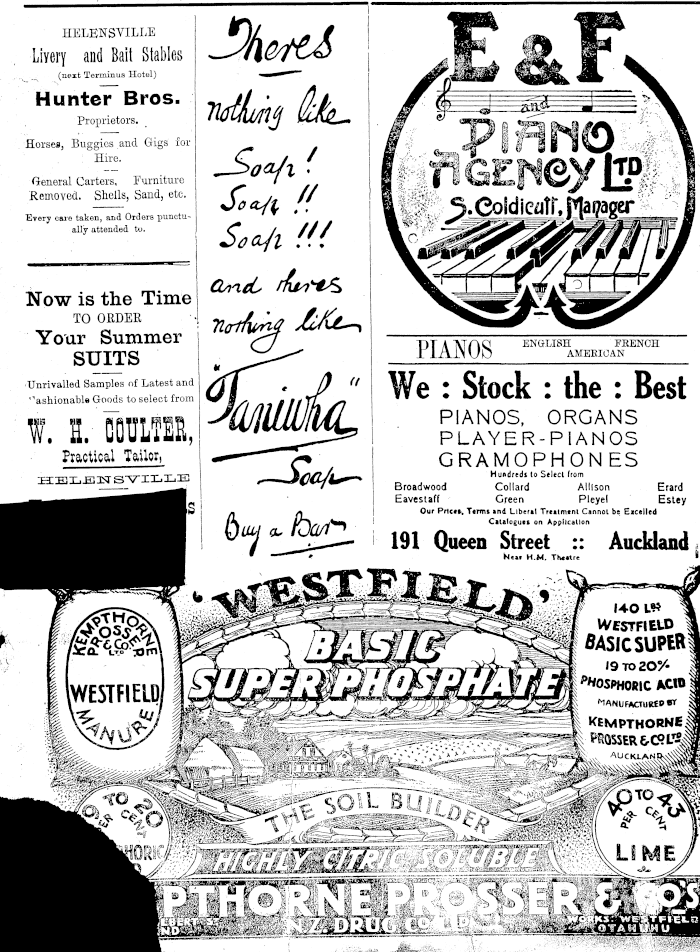 HELENSVILLE
Livery and Bait Stables
(next Terminus Hotel)
Hunter Bros.
Proprietors.
Horses, Buggies and Gigs for
Hire.
General Carters, Furniture
Removed. Shells, Sand, etc.
Every care taken, and Orders punctu-
ally attended to.
Now is the Time
TO ORDER
Your Summer
SUITS
Unrivalled Samples of Latest and
ashionable Goods to select from
W. H. COULTER,
Practical Tailor,
HELENSVILLE
Theres
nothing like
Soap!
Soap!!
Soap!!!
and theres
nothing like
"Taniwha"
Soap
Buy a Bar
E & F
and
PIANO
AGENCY LTD
S. Coldicutt, Manager
PIANOS ENGLISH FRENCH
AMERICAN
We : Stock : the : Best
PIANOS, ORGANS
PLAYER-PIANOS
GRAMOPHONES
Hundreds to Select from
Broadwood Collard Allison Erard
Eavestaff Green Pleyel Estey
Our Prices, Terms and Liberal Treatment Cannot be Excelled
Catalogues on Application
191 Queen Street :: Auckland
Near H.M. Theatre
'WESTFIELD'
BASIC
SUPER PHOSPHATE
KEMPTHORNE
PROSSER
& CO.
LTD
WESTFIELD
MANURE
140 LBS
WESTFIELD
BASIC SUPER
19 TO 20%
PHOSPHORIC ACID
MANUFACTURED BY
KEMPTHORNE
PROSSER & CO LTD
AUCKLAND
THE SOIL BUILDER
TO 20
PER CENT
PHORIC
40 TO 43
PER CENT
LIME
HIGHLY CITRIC SOLUBLE
PTHORNE PROSSER & CO'S
N.Z. DRUG CO. LTD
WORKS: WESTFIELD
OTAHUHU